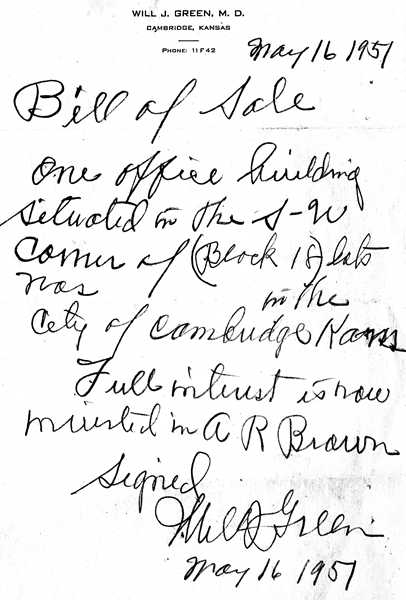 WILL J. GREEN, M. D.
CAMBRIDGE, KANSAS
PHONE: 11F42
May 16 1951
Bill of Sale
One office building
situated in the S-W
corner of (Block 18) lots
nos
in the
City of Cambridge Kans
Full interest is now
in A R Brown
Signed
Will J Green
May 16 1951